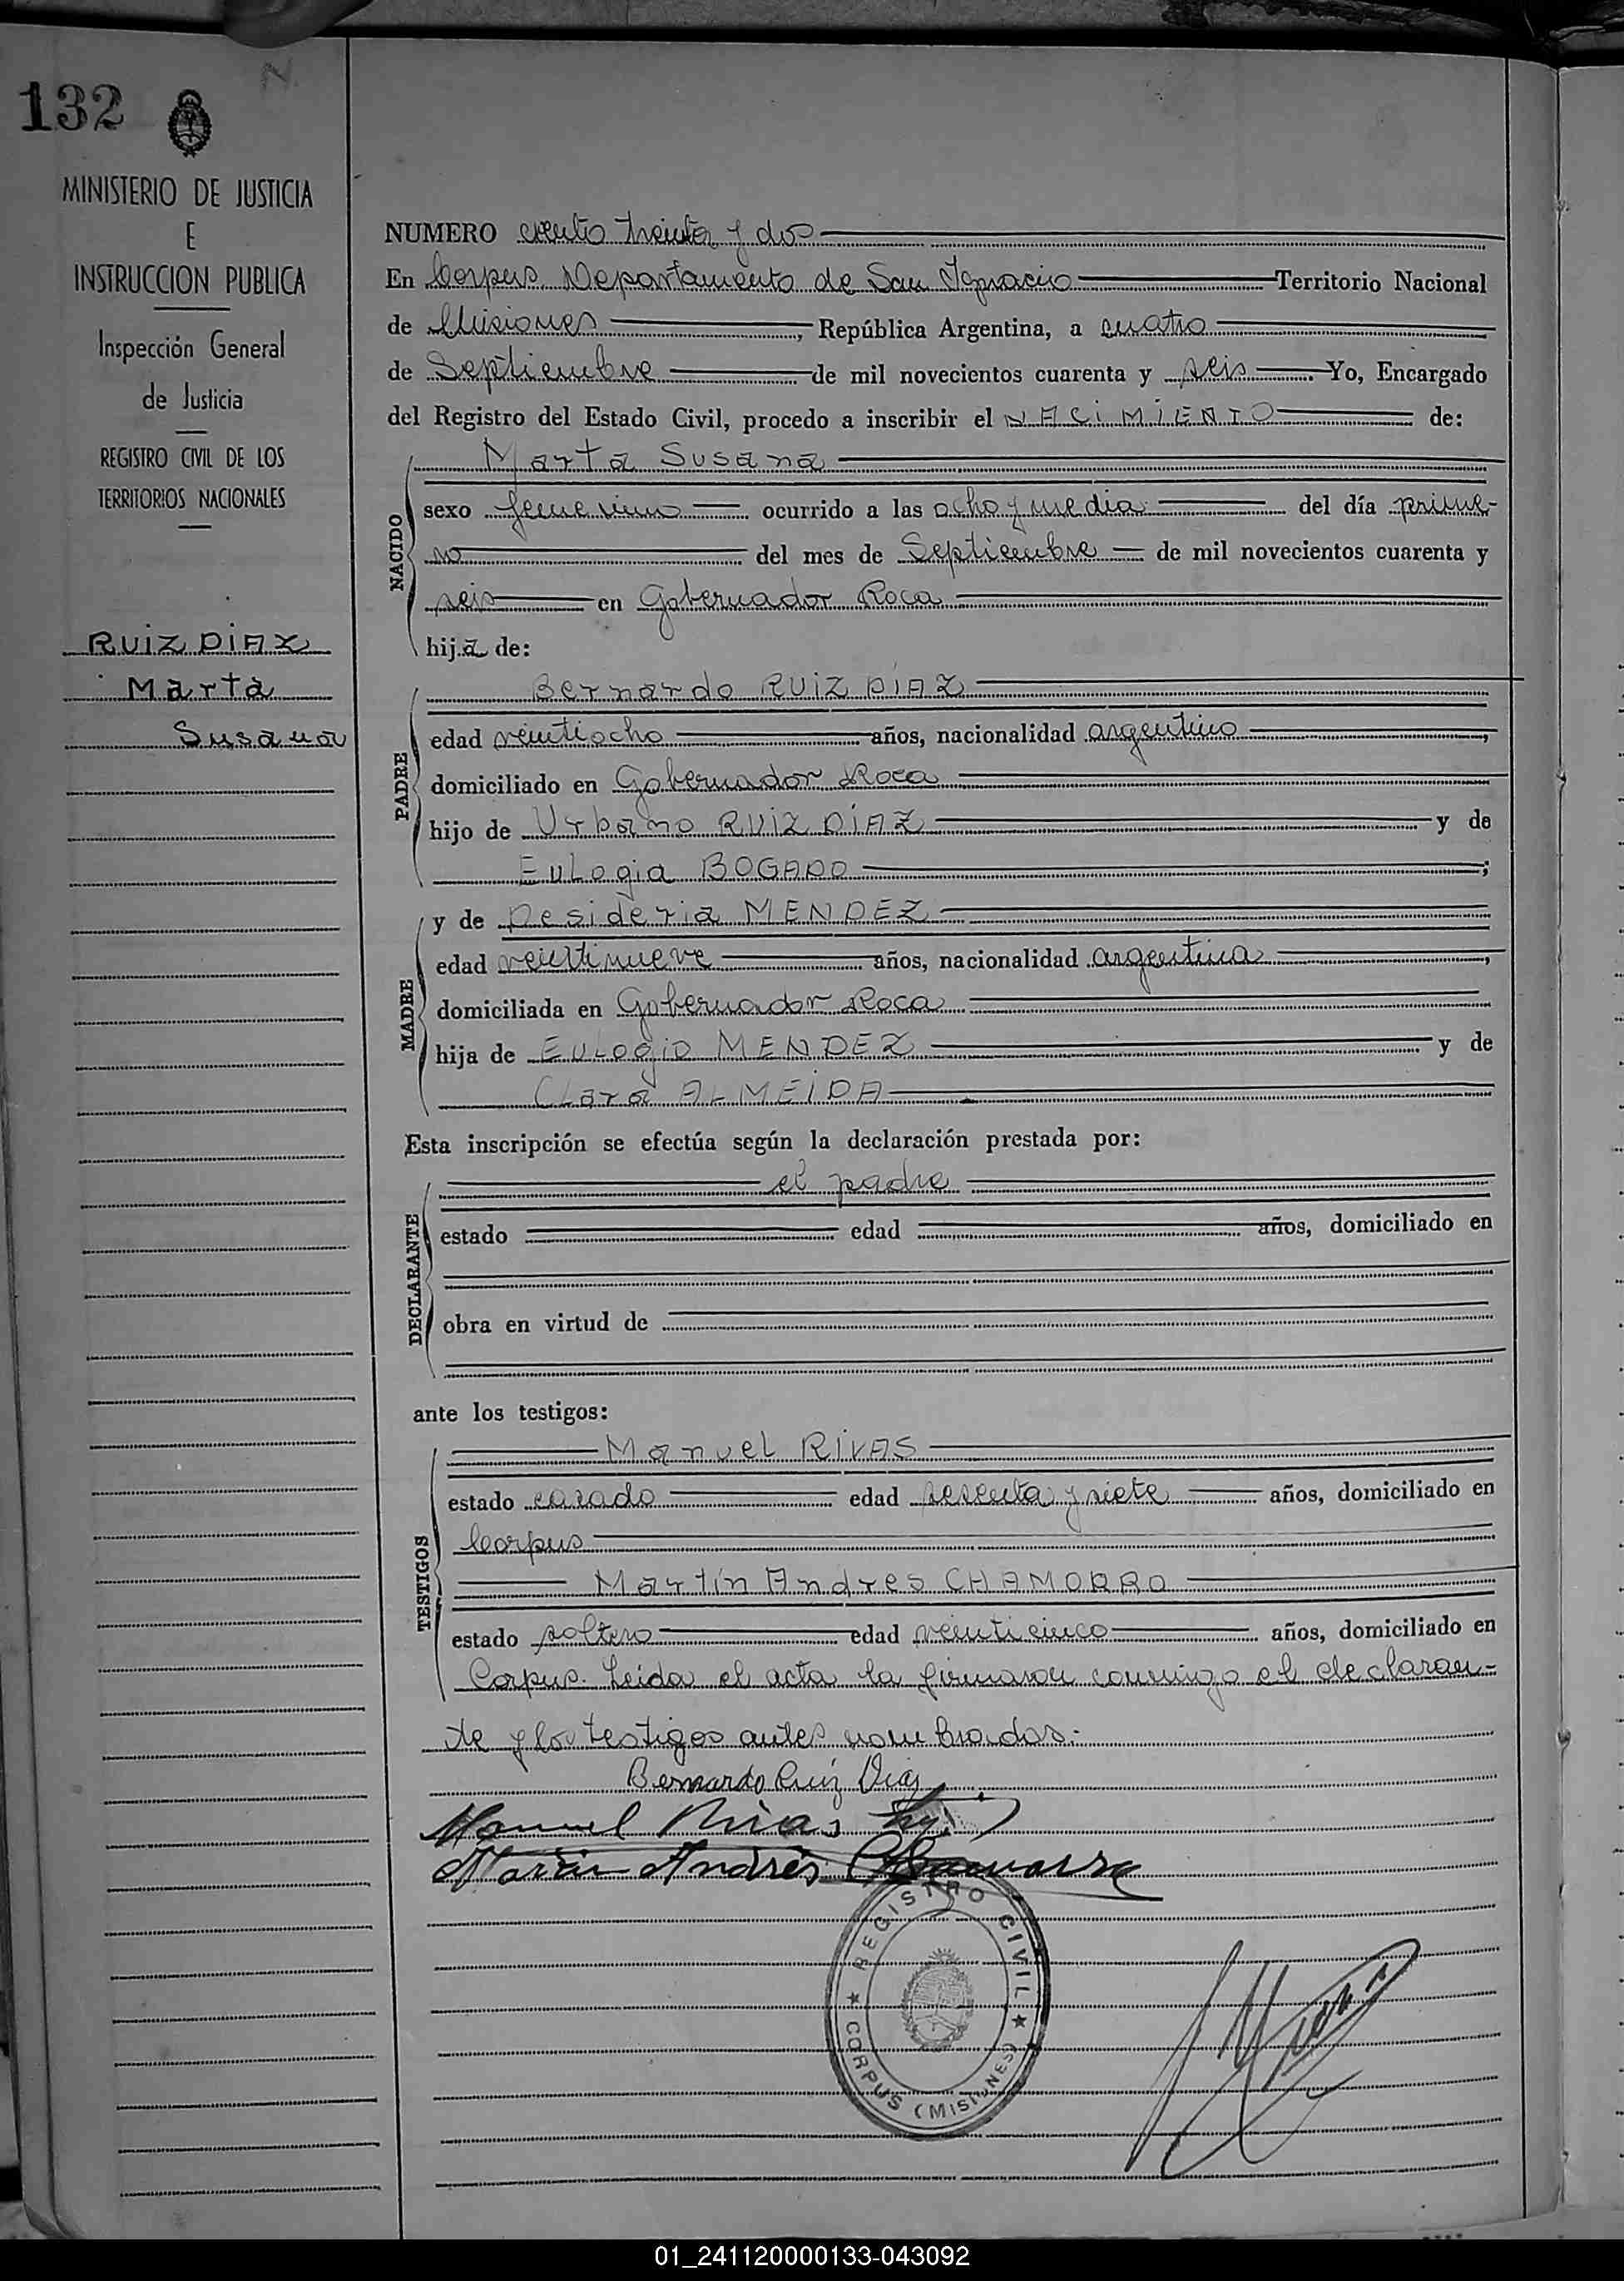 132
MINISTERIO DE JUSTICIA
E
INSTRUCCION PUBLICA
Inspección General
de Justicia
REGISTRO CIVIL DE LOS
TERRITORIOS NACIONALES
RUIZ DIAZ
Marta
Susana
NUMERO ciento treinta y dos
En Corpus, Departamento de San Ignacio Territorio Nacional
de Misiones, República Argentina, a cuatro
de Septiembre de mil novecientos cuarenta y seis. Yo, Encargado
del Registro del Estado Civil, procedo a inscribir el NACIMIENTO de:
NACIDO
Marta Susana
sexo femenino ocurrido a las ocho y media del día prime-
ro del mes de Septiembre de mil novecientos cuarenta y
seis en Gobernador Roca
hija de:
PADRE
Bernardo RUIZ DIAZ
edad veintiocho años, nacionalidad argentino,
domiciliado en Gobernador Roca
hijo de Urbano RUIZ DÍAZ y de
Eulogia BOGADO;
MADRE
y de Desideria MENDEZ
edad veintinueve años, nacionalidad argentina,
domiciliada en Gobernador Roca
hija de Eulogio MENDEZ y de
Clara ALMEIDA
Esta inscripción se efectúa según la declaración prestada por:
DECLARANTE
el padre
estado edad años, domiciliado en
obra en virtud de
ante los testigos:
TESTIGOS
Manuel RIVAS
estado casado edad sesenta y siete años, domiciliado en
Corpus
Martín Andres CHAMORRO
estado soltero edad veinticinco años, domiciliado en
Corpus. Leida el acta la firmaron conmigo el declaran-
te y los testigos antes nombrados.
Bernardo Ruiz Diaz
Manuel Rivas
Martin Andrés Chamorro
REGISTRO CIVIL
CORPUS (MISIONES)
01_241120000133-043092